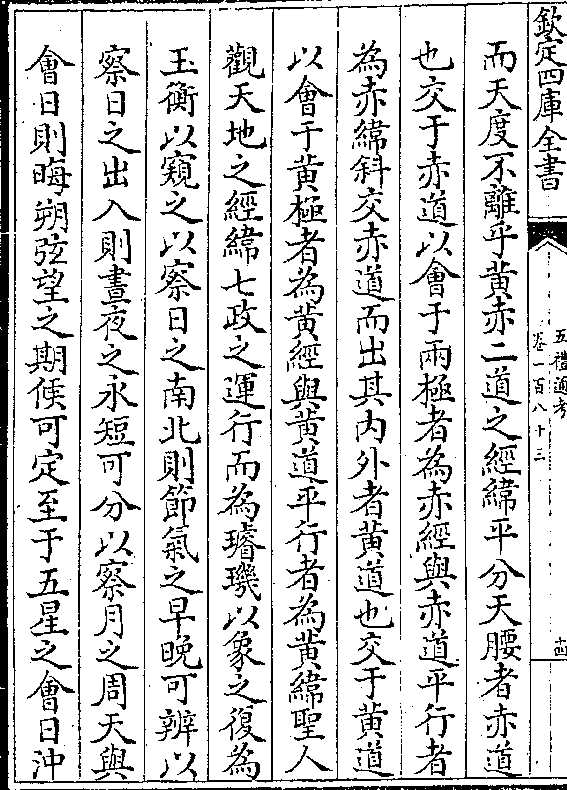 欽定四庫全書
五禮通考
卷一百八十三
十四
而天度不離乎黃赤二道之經緯平分天腰者赤道
也交于赤道以會于兩極者為赤經與赤道平行者
為赤緯斜交赤道而出其内外者黃道也交于黃道
以會于黃極者為黃經與黃道平行者為黃緯聖人
觀天地之經緯七政之運行而為璿璣以象之復為
玉衡以窺之以察日之南北則節氣之早晚可辨以
察日之出入則晝夜之永短可分以察月之周天與
會日則晦朔弦望之期候可定至于五星之會日沖